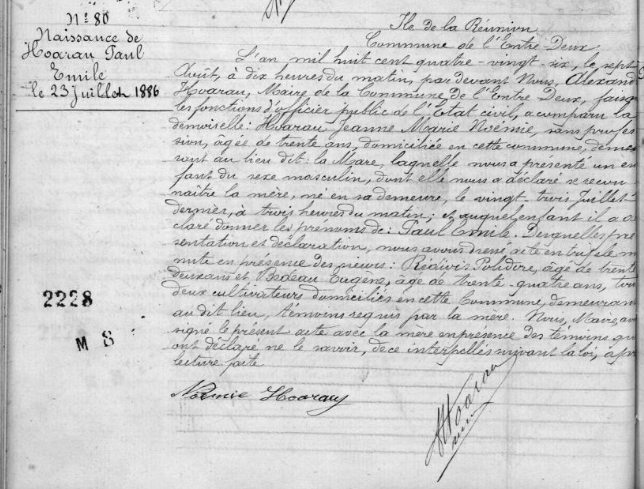 N° 80
Naissance de
Hoarau Paul
Emile
le 23 Juillet 1886
Ile de la Réunion
Commune de l'Entre Deux
L'an mil huit cent quatre-vingt-six, le sept
Août, à dix heures du matin, par devant Nous, Alexand
Hoarau, Maire de la Commune de l'Entre Deux, faisa
les fonctions d'officier public de l'Etat civil, a comparu la
demoiselle: Hoarau Jeanne Marie Noémie, sans profes
sion, agée de trente ans, domiciliée en cette commune, demeu
rant au lieu dit: la Mare, laquelle nous a présenté un en
fant du sexe masculin, dont elle nous a déclaré se recon
naître la mère, né en sa demeure, le vingt-trois Juillet
dernier, à trois heures du matin; et auquel enfant il a
claré donner les prénoms de: Paul Emile. Desquelles pré
sentation et déclaration, nous avons dressé acte en triple mi
nute en présence des sieurs: Polidore, âgé de trente
deux ans et Eugène, âgé de trente-quatre ans, tous
deux cultivateurs domiciliés en cette Commune, demeurant
au dit lieu, témoins requis par la mère. Nous, Maire, avo
signé le présent acte avec la mère en présence des témoins qui
ont déclaré ne le savoir, de ce interpellés suivant la loi, après
lecture faite
2228
M 8
Noémie Hoarau
Hoarau